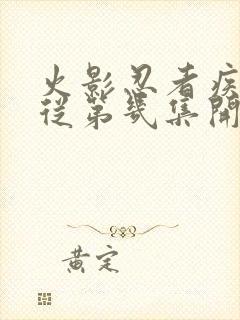 火影忍者疾
從第幾集開
黃定